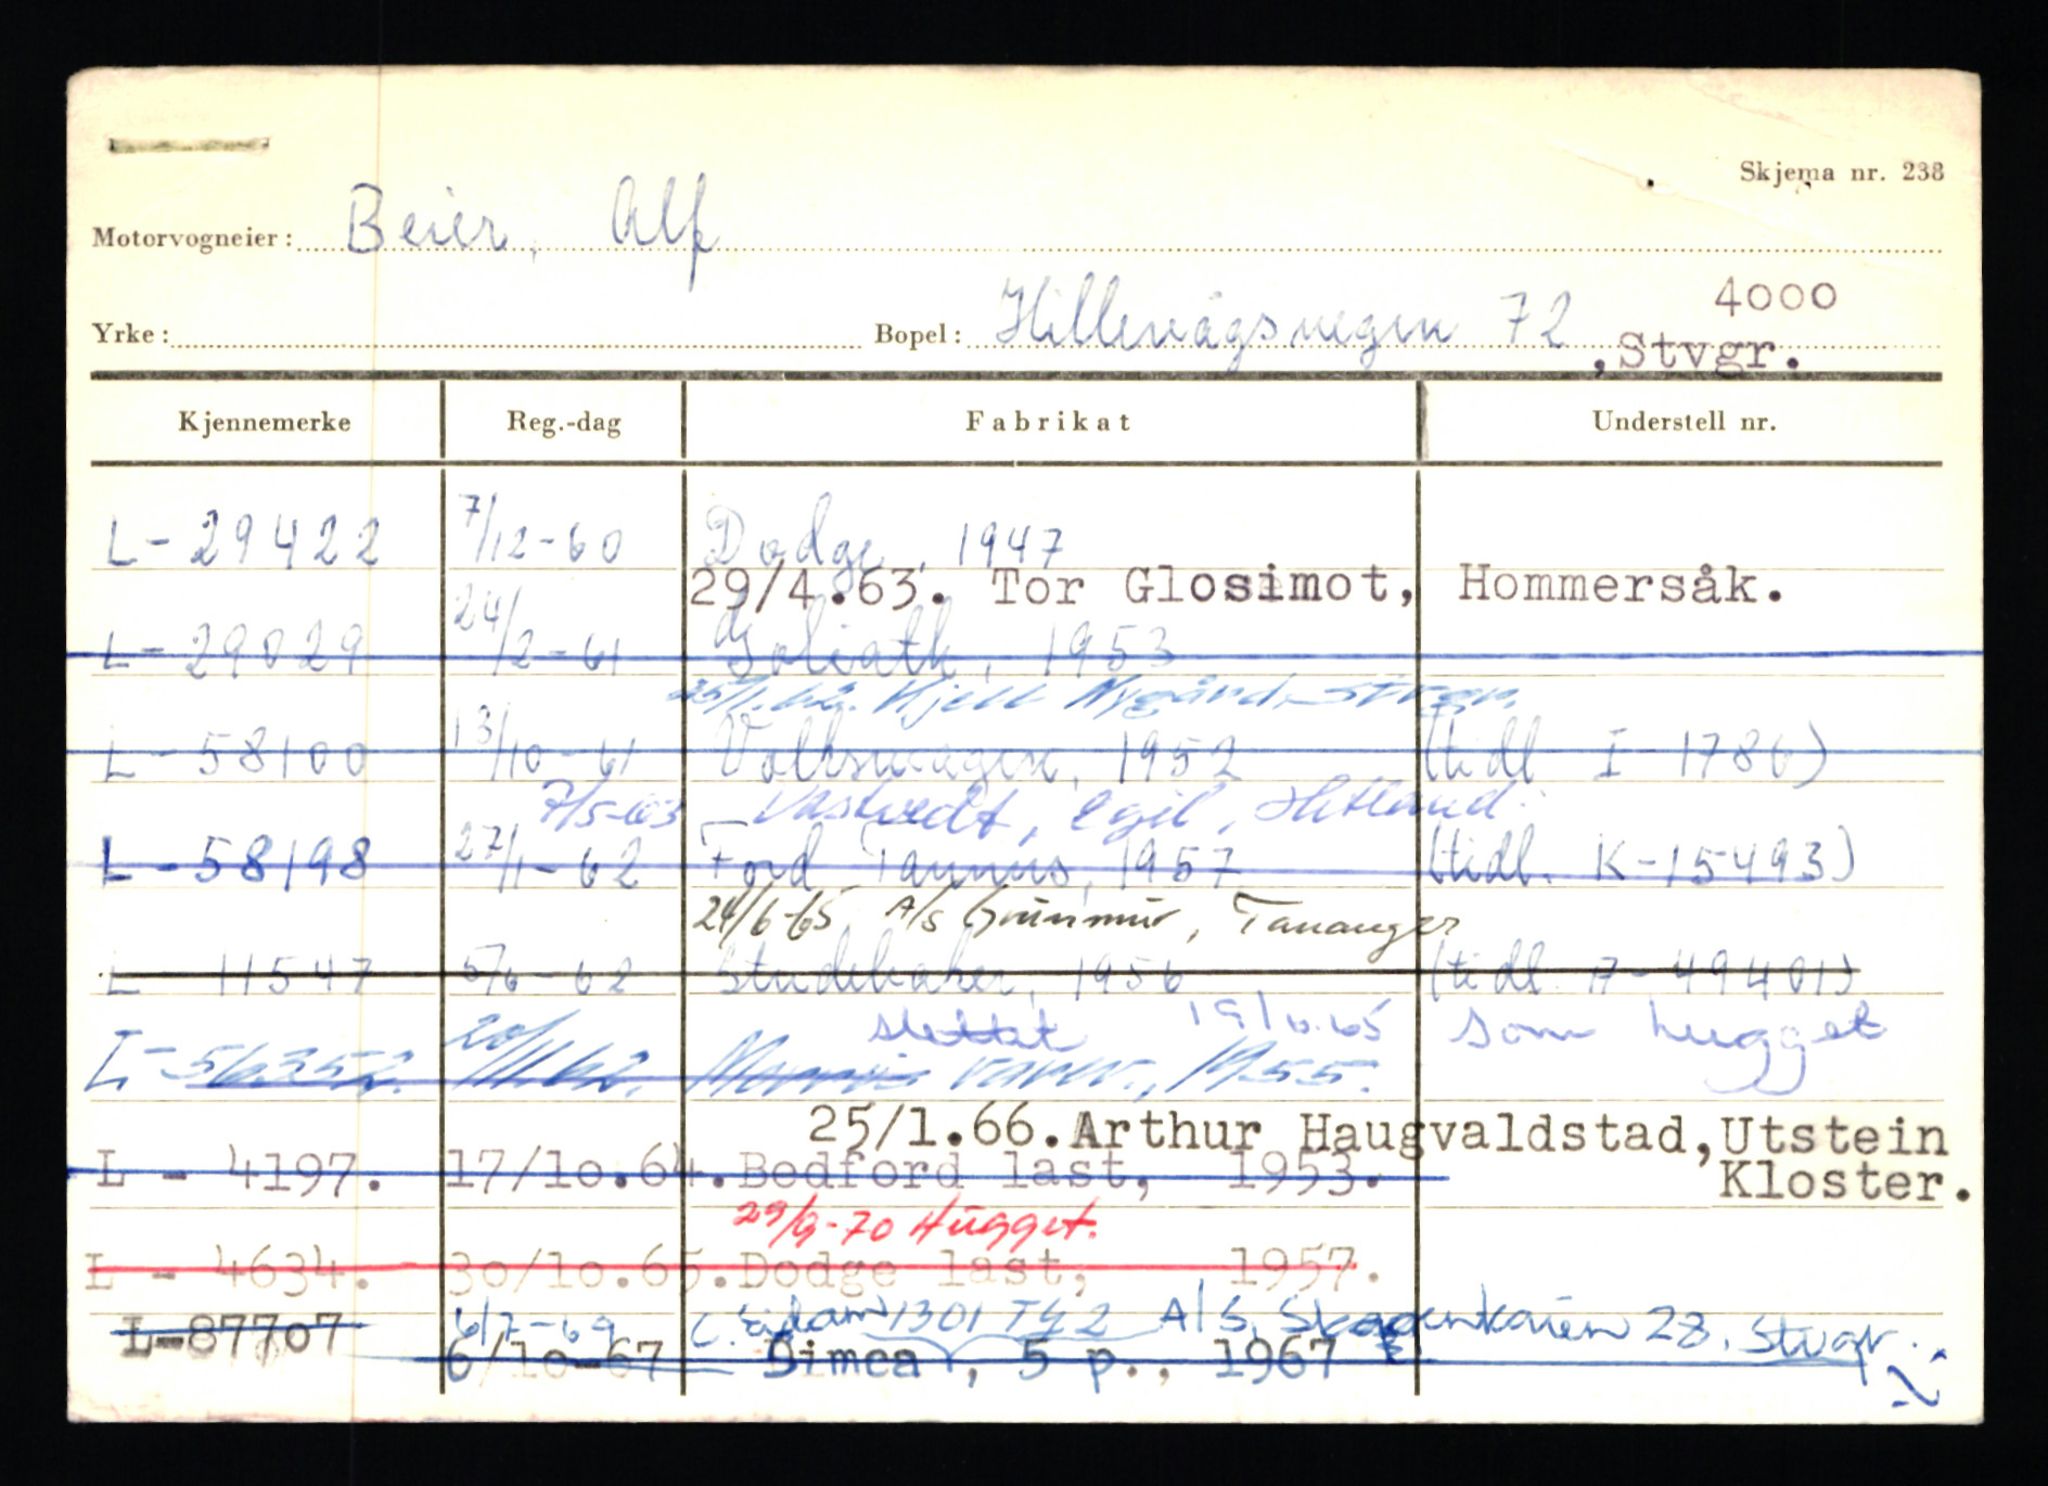 Skjema nr. 238
Motorvogneier: Beier, Alf
4000
Yrke: Bopel: Hillevågsvegen 72, Stvgr.
Kjennemerke Reg.-dag Fabrikat Understell nr.
L-29422 7/12-60 Dodge, 1947
29/4.63. Tor Glosimot, Hommersåk.
L-29029 24/2-61 Goliath, 1953
25/1.62. Kjell Nygård, Strgn.
L-58100 13/10-61 Volkswagen, 1952 (tidl I-1786)
7/5-63 Vastvedt, Egil, Hetland.
L-58198 27/1-62 Ford Taunus, 1957 (tidl. K-15493)
24/6-65 A/S Grunnmur, Tananger
L 11547 5/6-62 Studebaker, 1956 (tidl. A-49401)
slettet 19/10.65 som hugget
L-56352. 20/11.62. Morris varev., 1955.
25/1.66. Arthur Haugvaldstad, Utstein
L - 4197. 17/10.64. Bedford last, 1953. Kloster.
29/9-70 Hugget.
L - 4634. 30/10.65. Dodge last, 1957.
6/7-69 C. Eidam A/S, Skagenkaien 28, Stvgr.
L-87707 6/10-67 Simca 1301 , 5 p., 1967